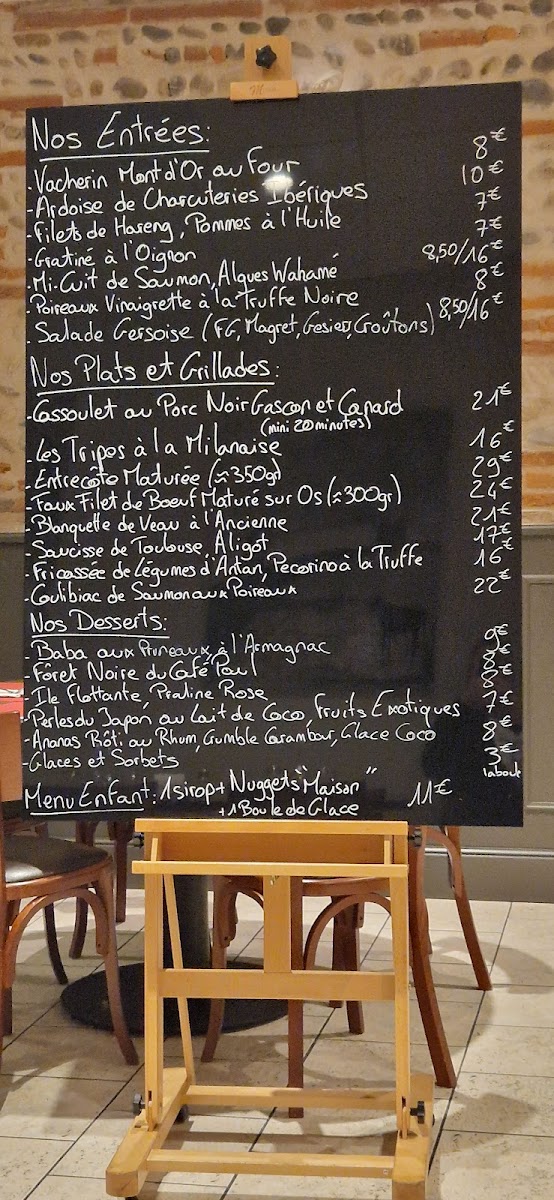 Nos Entrées:
- Vacherin Mont d'Or au Four 8€
- Ardoise de Charcuteries Ibériques 10€
- Filets de Hareng, Pommes à l'Huile 7€
- Gratiné à l'Oignon 7€
- Mi-Cuit de Saumon, Algues Wahamé 8,50/16€
- Poireaux Vinaigrette à la Truffe Noire 8€
- Salade Gersoise (FG, Magret, Gesier, Croûtons) 8,50/16€
Nos Plats et Grillades:
- Cassoulet au Porc Noir Gascon et Canard 21€
(mini 20 minutes)
- Les Tripes à la Milanaise 16€
- Entrecôte Maturée (≈350gr) 29€
- Faux Filet de Boeuf Maturé sur Os (≈300gr) 24€
- Blanquette de Veau à l'Ancienne 21€
- Saucisse de Toulouse, Aligot 17€
- Fricassée de Légumes d'Antan, Pecorino à la Truffe 16€
- Coulibiac de Saumon aux Poireaux 22€
Nos Desserts:
- Baba aux Pruneaux, à l'Armagnac 9€
- Fôret Noire du Café Paul 8€
- Ile Flottante, Praline Rose 8€
- Perles du Japon au Lait de Coco, Fruits Exotiques 7€
- Ananas Rôti au Rhum, Crumble Carambar, Glace Coco 8€
- Glaces et Sorbets 3€
la boule
Menu Enfant: 1 sirop + Nuggets "Maison" 11€
+ 1 Boule de Glace